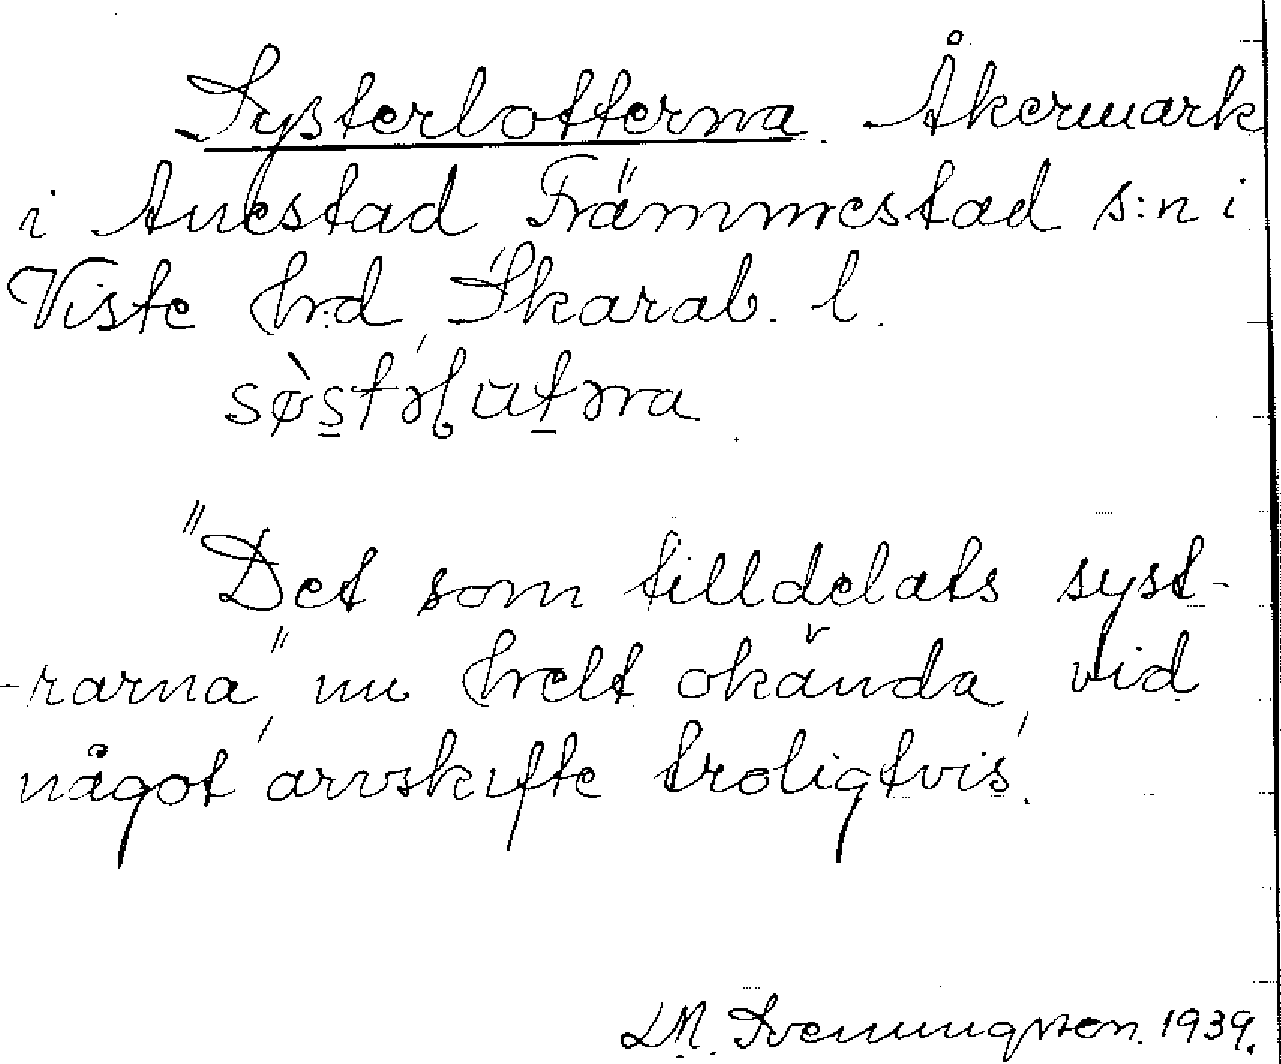 Systerlotterna. Åkermark
i Anestad, Främmestad s:n i
Viste hrd, Skarab. l.

"Det som tilldelats syst-
-rarna", nu helt okända, vid
något arvskifte troligtvis.
L.M. Svenungsson. 1939.